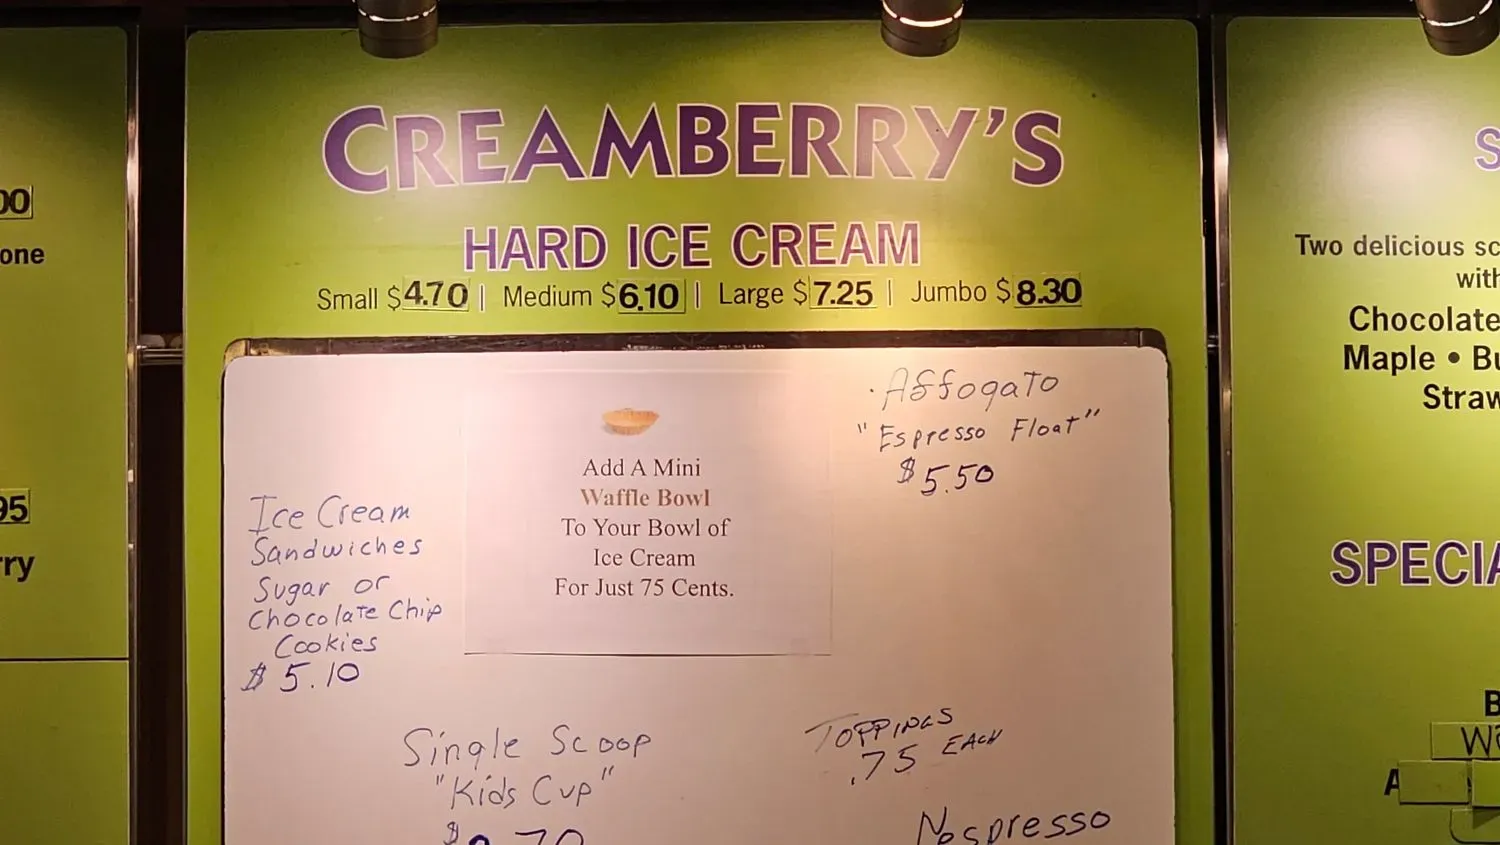 CREAMBERRY'S
HARD ICE CREAM
Small $4.70 | Medium $6.10 | Large $7.25 | Jumbo $8.30
Add A Mini
Waffle Bowl
To Your Bowl of
Ice Cream
For Just 75 Cents.
· Affogato
"Espresso Float"
$5.50
Ice Cream
Sandwiches
Sugar or
Chocolate Chip
Cookies
$5.10
Single Scoop
"Kids Cup"
TOPPINGS
.75 EACH
Nespresso
00
one
95
rry
S
Two delicious sc
with
Chocolate
Maple • Bu
Straw
SPECIA
B
A